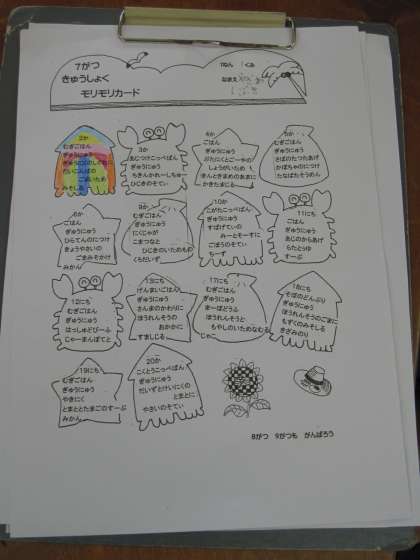 7がつ
きゅうしょく
モリモリカード
1ねん 1くみ
なまえ
2か
むぎごはん
ぎゅうにゅう
みそしる
3か
あじつけこっぺぱん
ぎゅうにゅう
ちきんかれーしちゅー
ひじきのそてい
4か
むぎごはん
ぎゅうにゅう
ぶたにくとごーやの
しょうがいため
かきたまじる
5か
むぎごはん
ぎゅうにゅう
さばのたつたあげ
かぼちゃのにつけ
たなばたそうめん
6か
ごはん
ぎゅうにゅう
ひらてんのにつけ
きょうやさいの
ごまみそかけ
みかん
9か
むぎごはん
ぎゅうにゅう
にくじゃが
こまつなと
ひじきのいためもの
10か
こがたこっぺぱん
ぎゅうにゅう
すぱげてぃの
みーとそーすに
ごぼうのそてい
ちーず
11にち
ごはん
ぎゅうにゅう
あじのからあげ
らたとぅゆ
すーぷ
12にち
むぎごはん
ぎゅうにゅう
はっしゅどびーふ
じゃーまんぽてと
13にち
げんまいごはん
ぎゅうにゅう
さんまのかわりに
ほうれんそうの
おかかに
すましじる
17にち
むぎごはん
ぎゅうにゅう
まーぼどうふ
ほうれんそうと
もやしのいためなむる
じゃこ
18にち
そぼろどんぶり
ぎゅうにゅう
ほうれんそうのごまに
もずくのみそしる
きざみのり
19にち
むぎごはん
ぎゅうにゅう
やきにく
とまととたまごのすーぷ
みかん
20か
こくとうこっぺぱん
ぎゅうにゅう
だいずとけいにくの
とまとに
やさいのそてい
8がつ 9がつも がんばろう